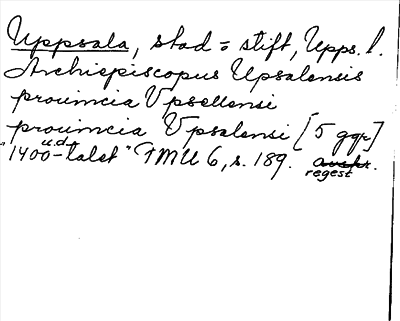 Uppsala, stad = stift, Upps. l.
Archiepiscopus Upsalensis
prouincia Vpsellensi
prouincia Vpsalensi [5 ggr]
u.d.
"1400-talet" FMU 6, s. 189. avskr.
regest